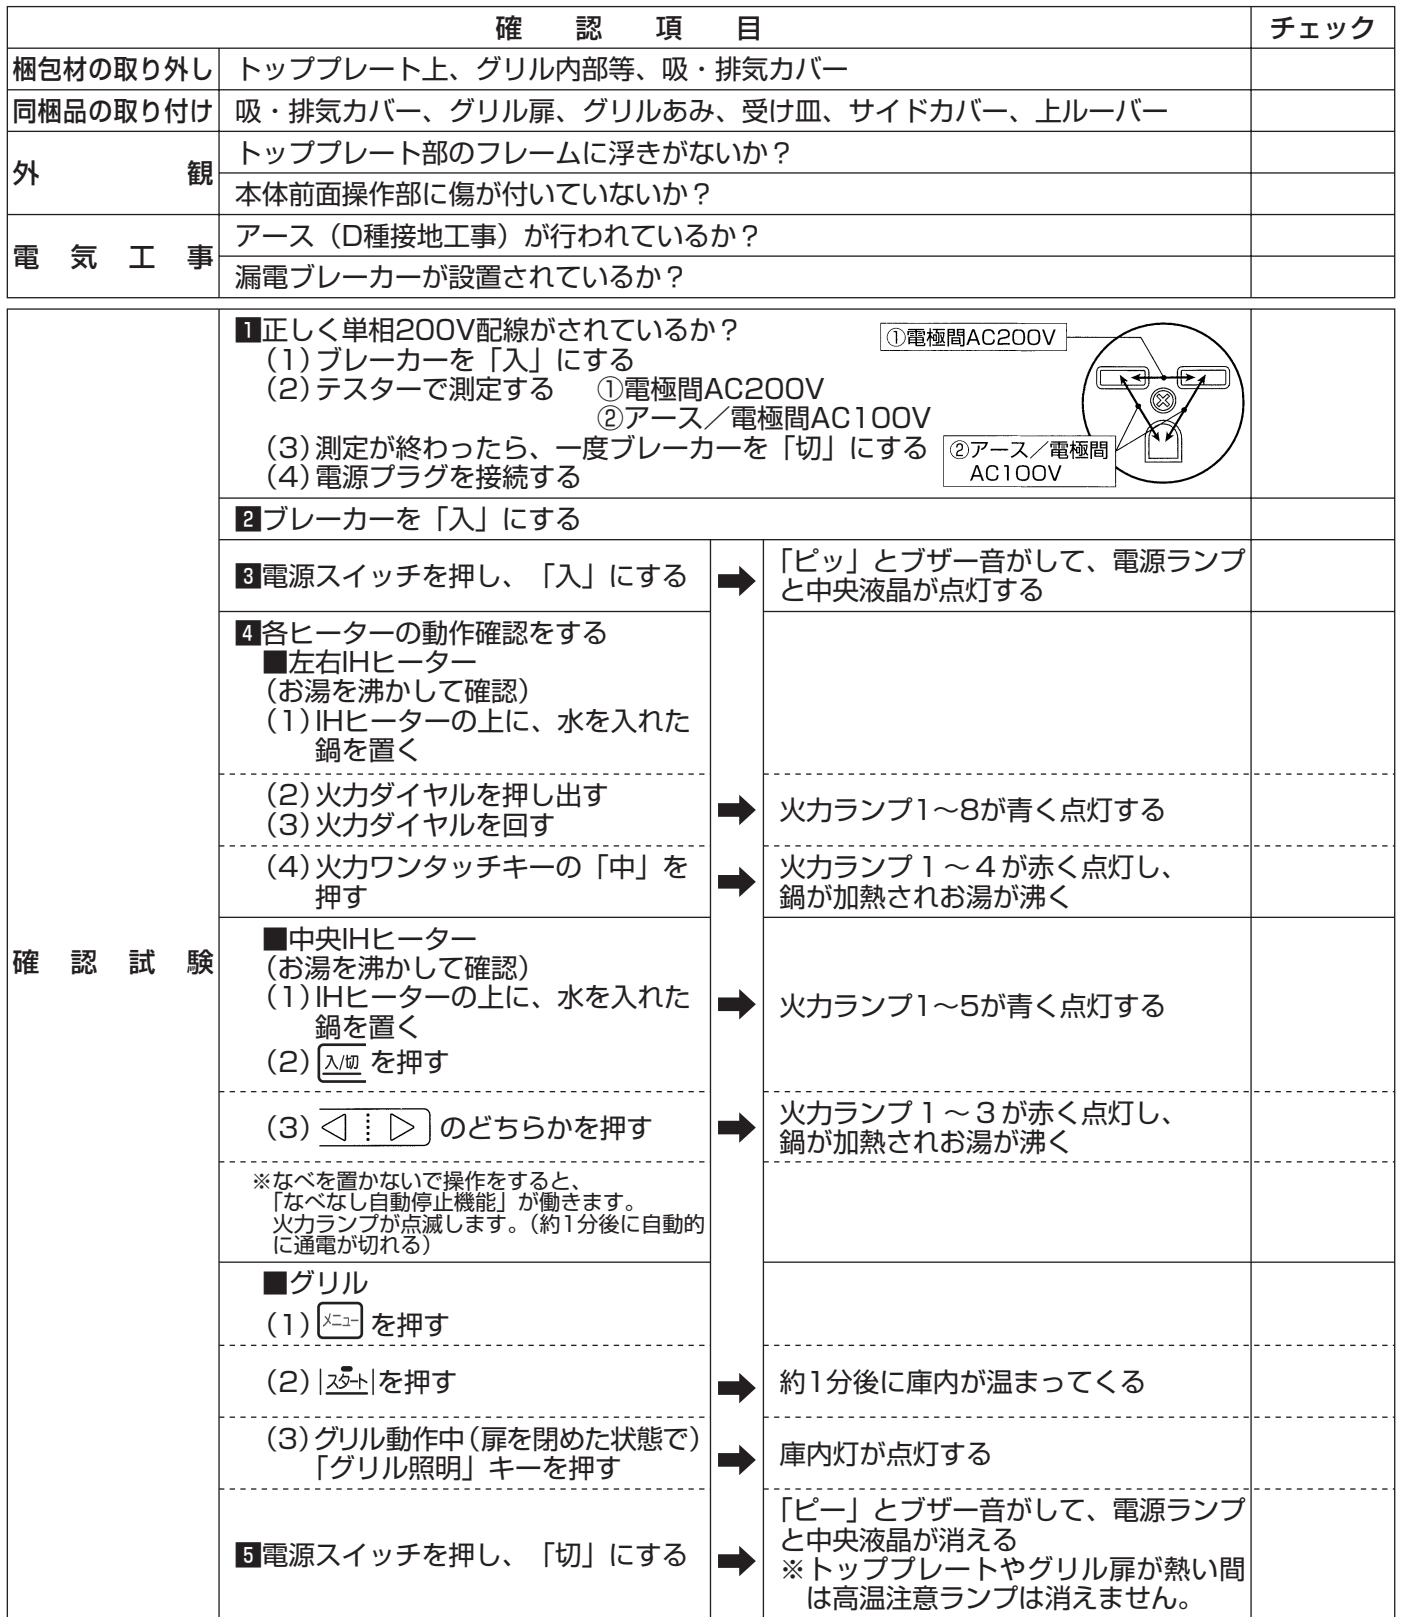 確認項目 チェック
梱包材の取り外し トッププレート上、グリル内部等、吸・排気カバー
同梱品の取り付け 吸・排気カバー、グリル扉、グリルあみ、受け皿、サイドカバー、上ルーバー
外観
トッププレート部のフレームに浮きがないか？
本体前面操作部に傷が付いていないか？
電気工事
アース（D種接地工事）が行われているか？
漏電ブレーカーが設置されているか？
確認試験
1正しく単相200V配線がされているか？
(1)ブレーカーを「入」にする
(2)テスターで測定する ①電極間AC200V
②アース／電極間AC100V
(3)測定が終わったら、一度ブレーカーを「切」にする
(4)電源プラグを接続する
①電極間AC200V
②アース／電極間
AC100V
2ブレーカーを「入」にする
3電源スイッチを押し、「入」にする
「ピッ」とブザー音がして、電源ランプ
と中央液晶が点灯する
4各ヒーターの動作確認をする
■左右IHヒーター
（お湯を沸かして確認）
(1)IHヒーターの上に、水を入れた
鍋を置く
(2)火力ダイヤルを押し出す
(3)火力ダイヤルを回す
火力ランプ1～8が青く点灯する
(4)火力ワンタッチキーの「中」を
押す
火力ランプ1～4が赤く点灯し、
鍋が加熱されお湯が沸く
■中央IHヒーター
（お湯を沸かして確認）
(1)IHヒーターの上に、水を入れた
鍋を置く
(2)入/切 を押す
火力ランプ1～5が青く点灯する
(3)◁ ▷ のどちらかを押す
火力ランプ1～3が赤く点灯し、
鍋が加熱されお湯が沸く
※なべを置かないで操作をすると、
「なべなし自動停止機能」が働きます。
火力ランプが点滅します。（約1分後に自動的
に通電が切れる）
■グリル
(1)メニュー を押す
(2)スタート を押す
約1分後に庫内が温まってくる
(3)グリル動作中（扉を閉めた状態で）
「グリル照明」キーを押す
庫内灯が点灯する
5電源スイッチを押し、「切」にする
「ピー」とブザー音がして、電源ランプ
と中央液晶が消える
※トッププレートやグリル扉が熱い間
は高温注意ランプは消えません。